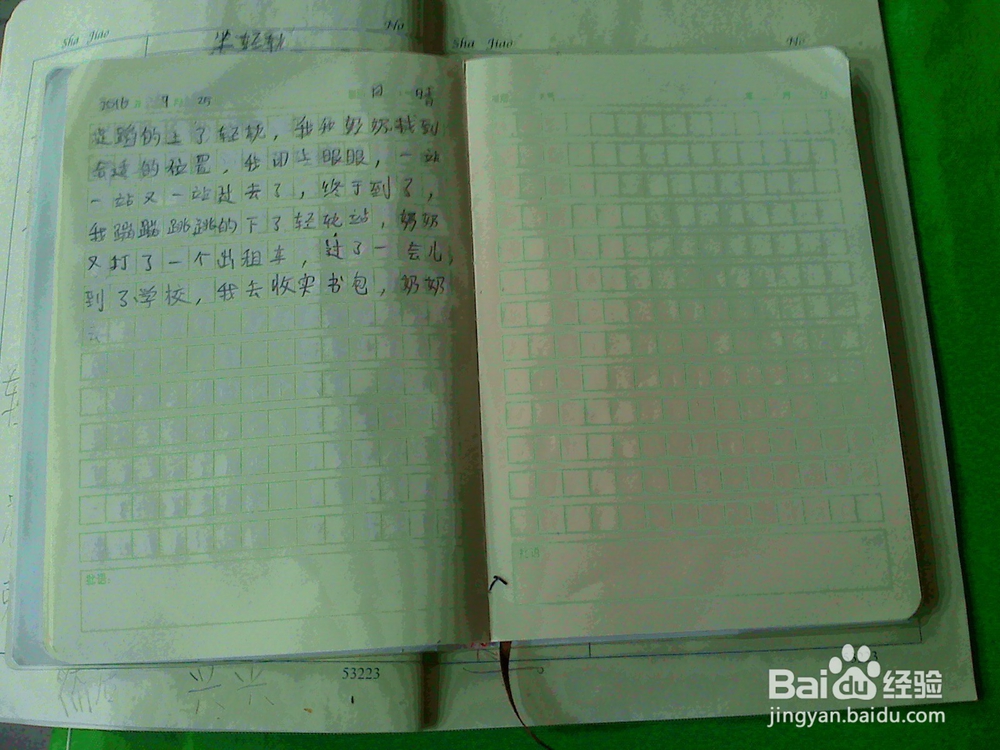 Sha Jiao No
坐轻轨
Sha Jiao No
2016 9 25 日 晴
蹦的上了轻轨，我和奶奶找到
合适的位置，我闭上眼眼，一站
一站又一站过去了，终于到了，
我蹦蹦跳跳的下了轻轨站，奶奶
又打了一个出租车，过了一会儿，
到了学校，我去收实书包，奶奶
批语：
批语：
53223
Baidu经验
jingyan.baidu.com